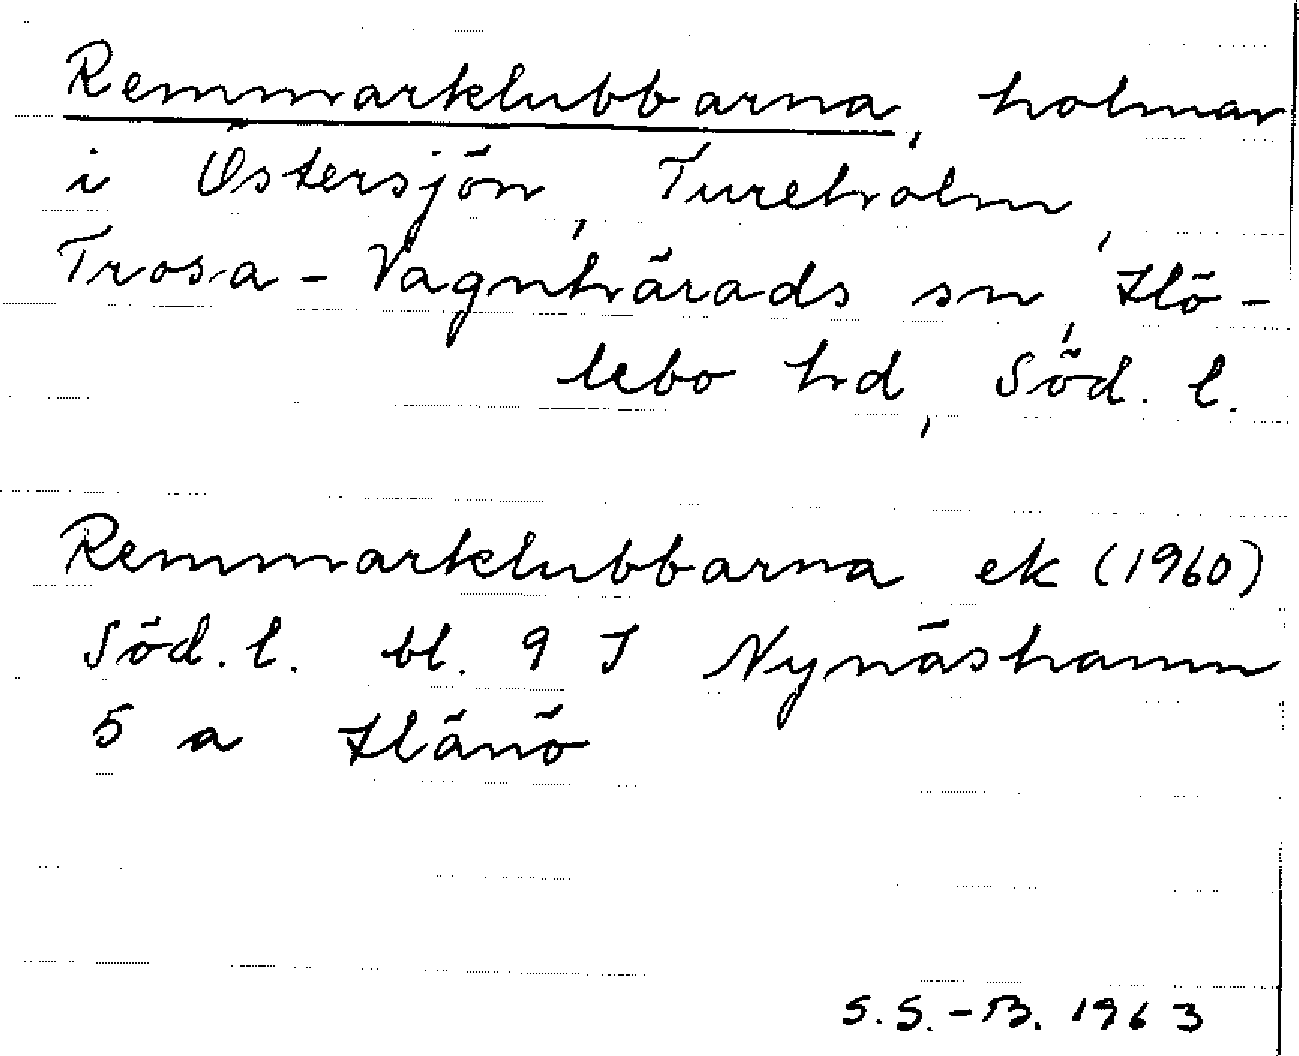 Remmarklubbarna, holmar
i Östersjön, Tureholm,
Trosa-Vagnhärads sn, Hö-
lebo hd, Söd. l.
Remmarklubbarna ek (1960)
Söd. l. bl. 9 J Nynäshamn
5 a Hånö
S.S.-B. 1963